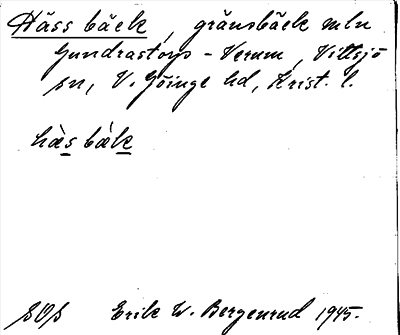 Hässbäck, gränsbäck mln
Gundrastorp - Verum, Vittsjö
sn, V. Göinge hd, Krist. l.
hɑ̀s bæ̀k
SOS Erik W. Bergenrud 1945.